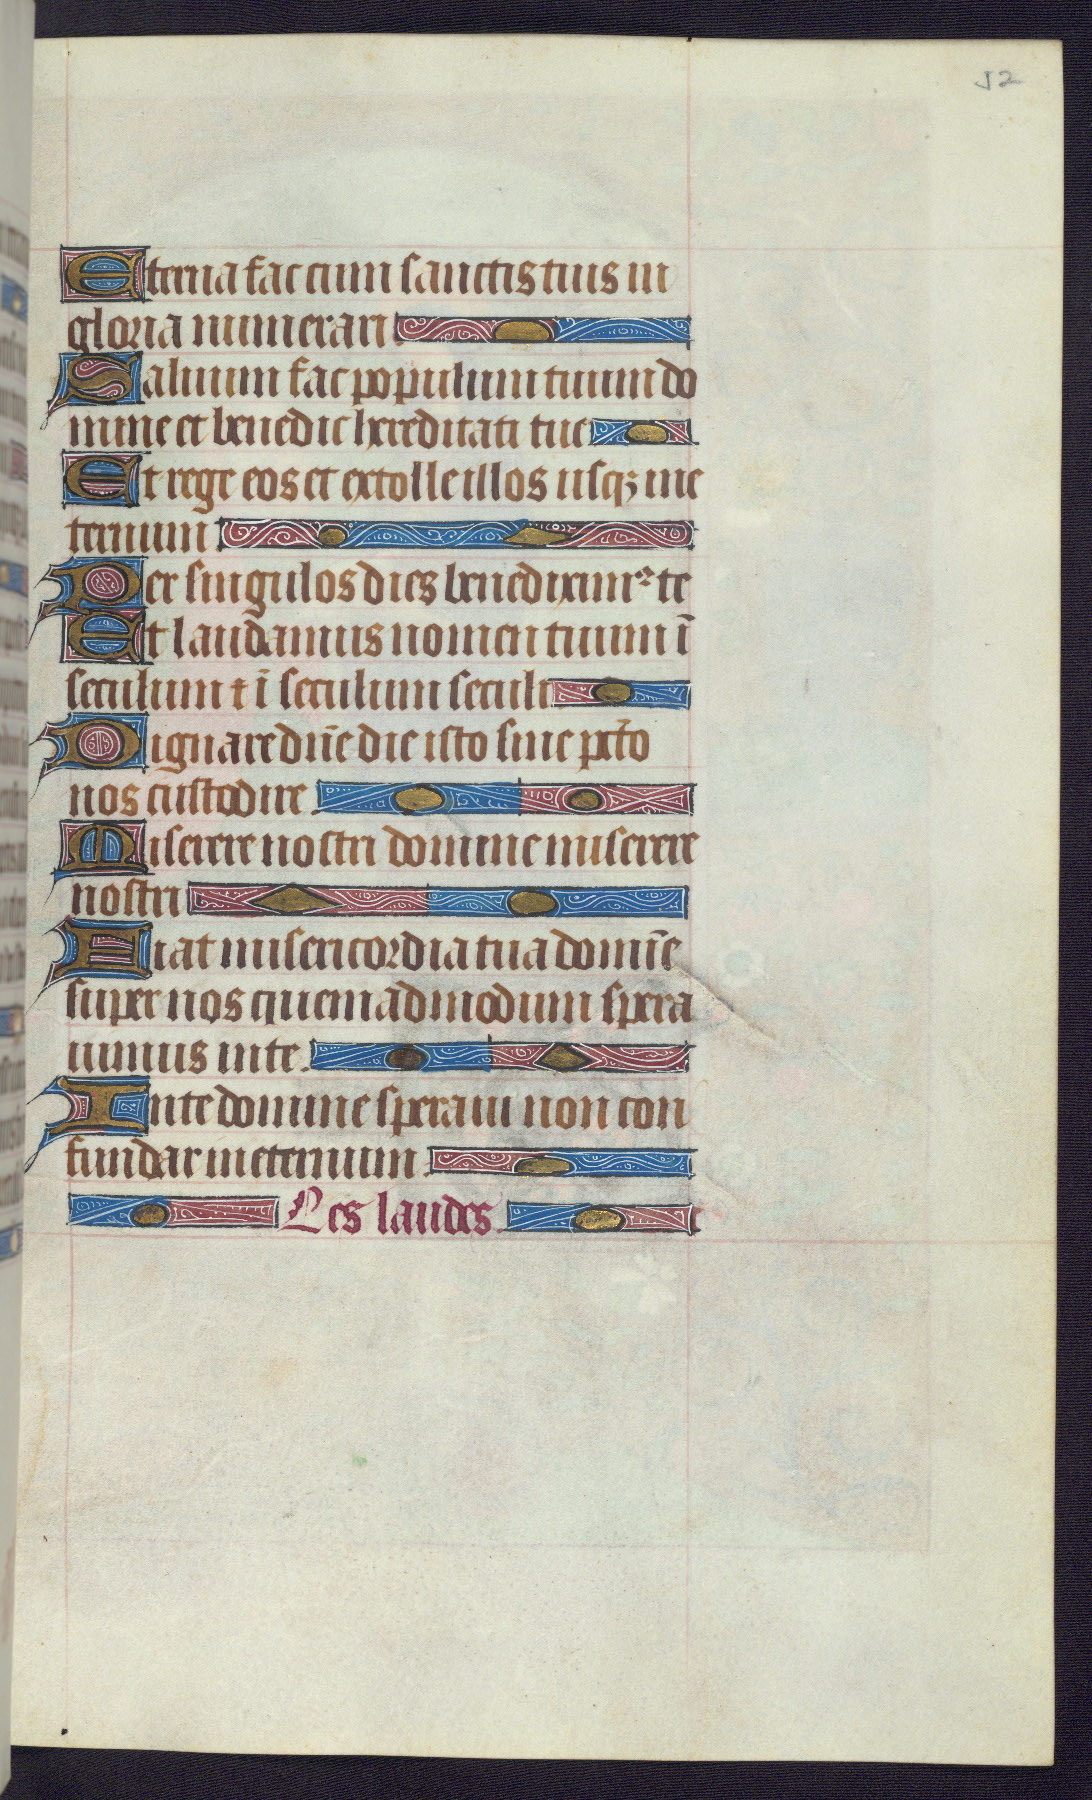 52
Eterna fac cum sanctis tuis in
gloria numerari
Saluum fac populum tuum do
mine et benedic hereditati tue
Et rege eos et extolle illos usqꝫ ine
ternum
Per singulos dies benedicimꝰ te
Et laudamus nomen tuum ī
seculum ⁊ ī seculum seculi
Dignare dn̄e die isto sine pct̄o
nos custodire
Miserere nostri domine miserere
nostri
Fiat misericordia tua domīe
super nos quemadmodum spera
uimus in te.
In te domine speraui non con
fundar in eternum
Les laudes